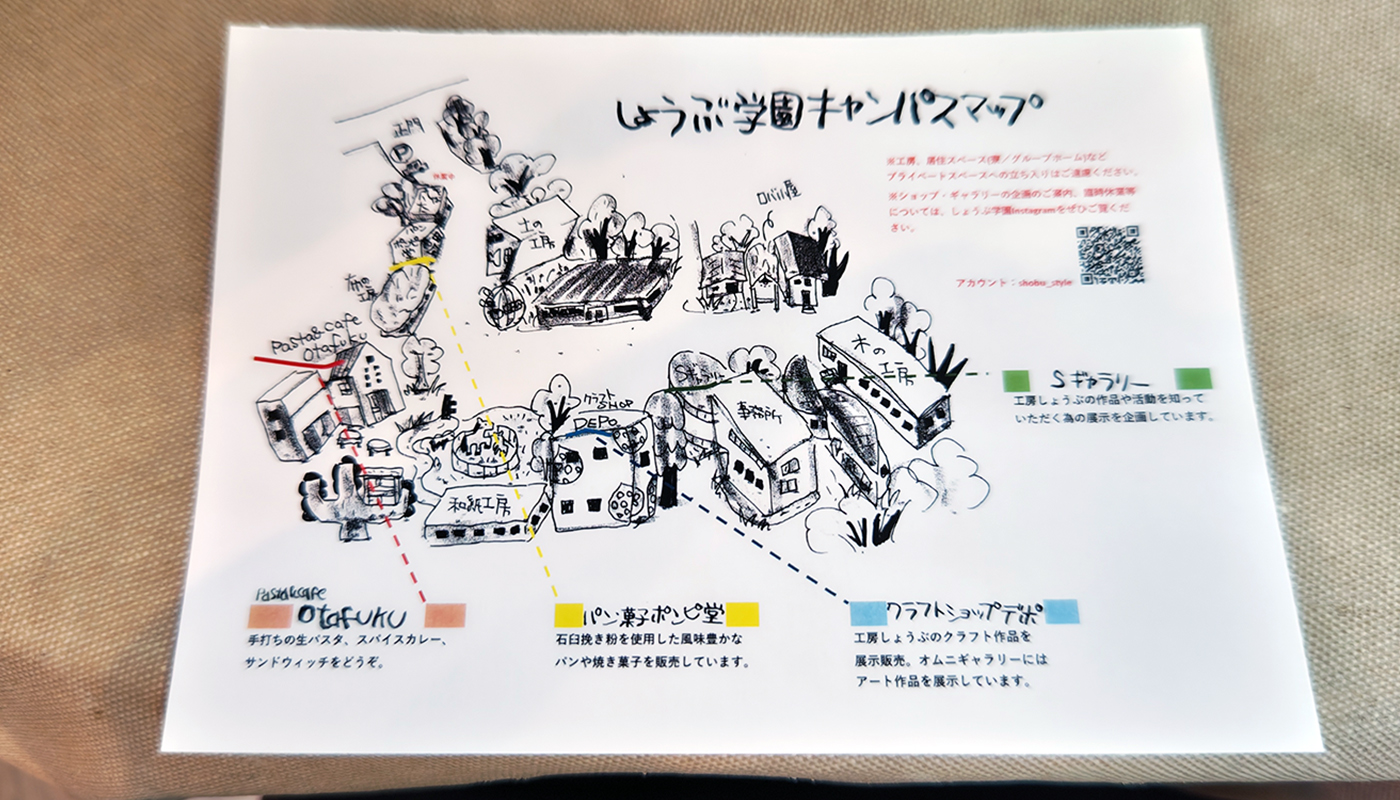 しょうぶ学園キャンパスマップ
※工房、居住スペース(寮／グループホーム)など
プライベートスペースへの立ち入りはご遠慮ください。
※ショップ・ギャラリーの企画のご案内、臨時休業等
については、しょうぶ学園Instagramをぜひご覧くだ
さい。
アカウント：shobu_style
正門
P
休業中
土の
工房
ロバハ屋
布の
工房
Pasta&cafe
Otafuku
木の
工房
Sギャラリー
事務所
クラフト
SHOP
DEPO
和紙工房
Sギャラリー
工房しょうぶの作品や活動を知って
いただく為の展示を企画しています。
Pasta&cafe
Otafuku
手打ちの生パスタ、スパイスカレー、
サンドウィッチをどうぞ。
パン菓子ポンピ堂
石臼挽き粉を使用した風味豊かな
パンや焼き菓子を販売しています。
クラフトショップデポ
工房しょうぶのクラフト作品を
展示販売。オムニギャラリーには
アート作品を展示しています。